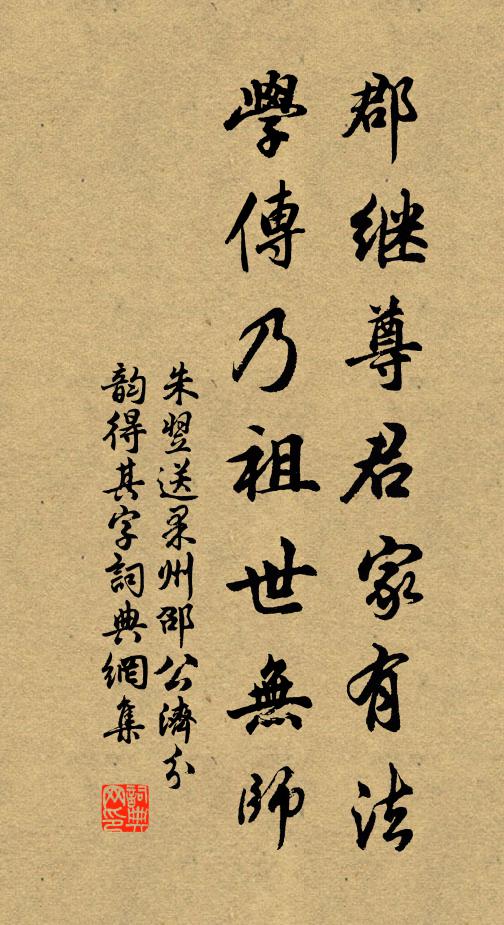 郡继尊君家有法
學傳乃祖世無師
朱翌送果州邵公濟分
韵得其字詞典網集
詞典
网印